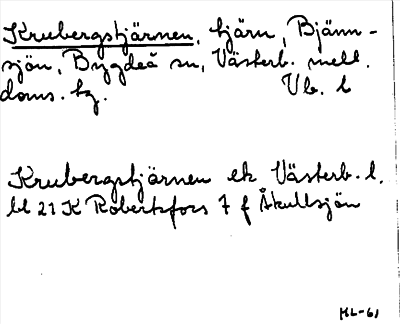 Krubergstjärnen, tjärn, Bjänn-
sjön, Bygdeå sn, Västerb. mell.
doms. tg. Vb. l
Krubergstjärnen ek Västerb. l.
bl 21 K Robertsfors 7 f Åkullsjön
KL-61